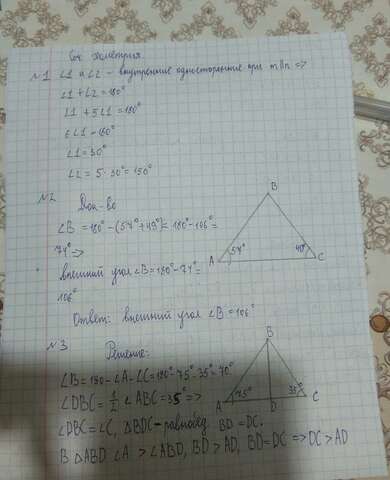 Соч геометрия.
№1 ∠1 и ∠2 - внутренние односторонние при m∥n =>
∠1 + ∠2 = 180°
∠1 + 5∠1 = 180°
6∠1 = 180°
∠1 = 30°
∠2 = 5 · 30° = 150°
№2 Док-во
∠B = 180° - (57° + 49°) = 180° - 106° =
74° =>
внешний угол ∠B = 180° - 74° =
106°
Ответ: внешний угол ∠B = 106°
B
A 57° 49° C
№3 Решение:
∠B = 180 - ∠A - ∠C = 180° - 75° - 35° = 70°
∠DBC = 1/2 ∠ABC = 35° =>
∠DBC = ∠C, △BDC - равнобед. BD = DC.
В △ABD ∠A > ∠ABD, BD > AD, BD = DC => DC > AD
B
A 75° D 35° C